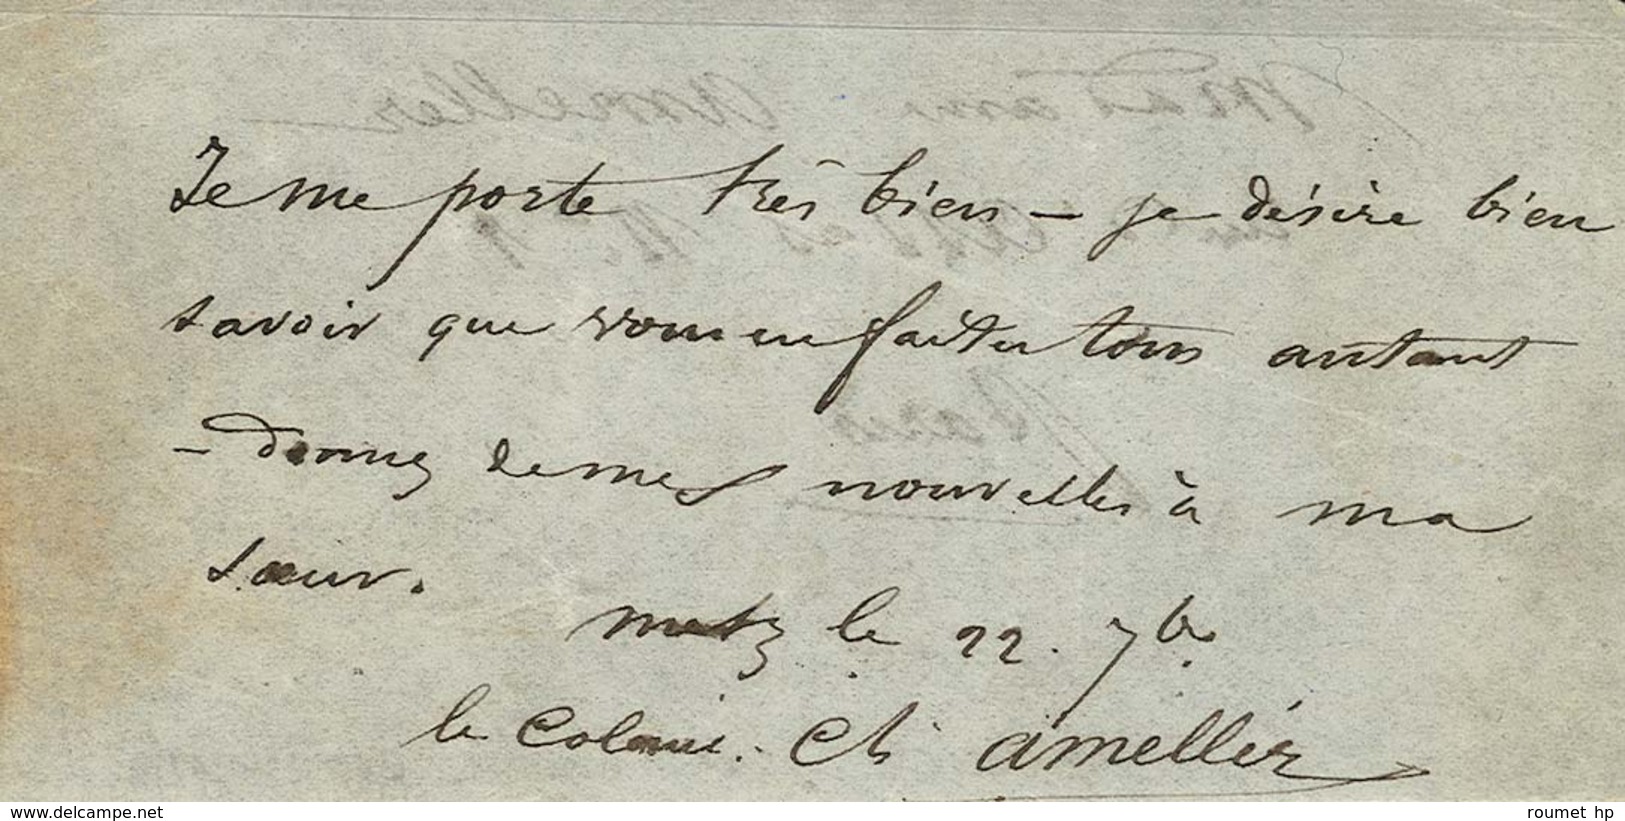 Je me porte très bien – je désire bien
savoir que vous en faites tous autant
– donnez de mes nouvelles à ma
sœur.
Metz le 22. 7bre
le Colonel. Ch Amellér
www.delcampe.net
roumet hp